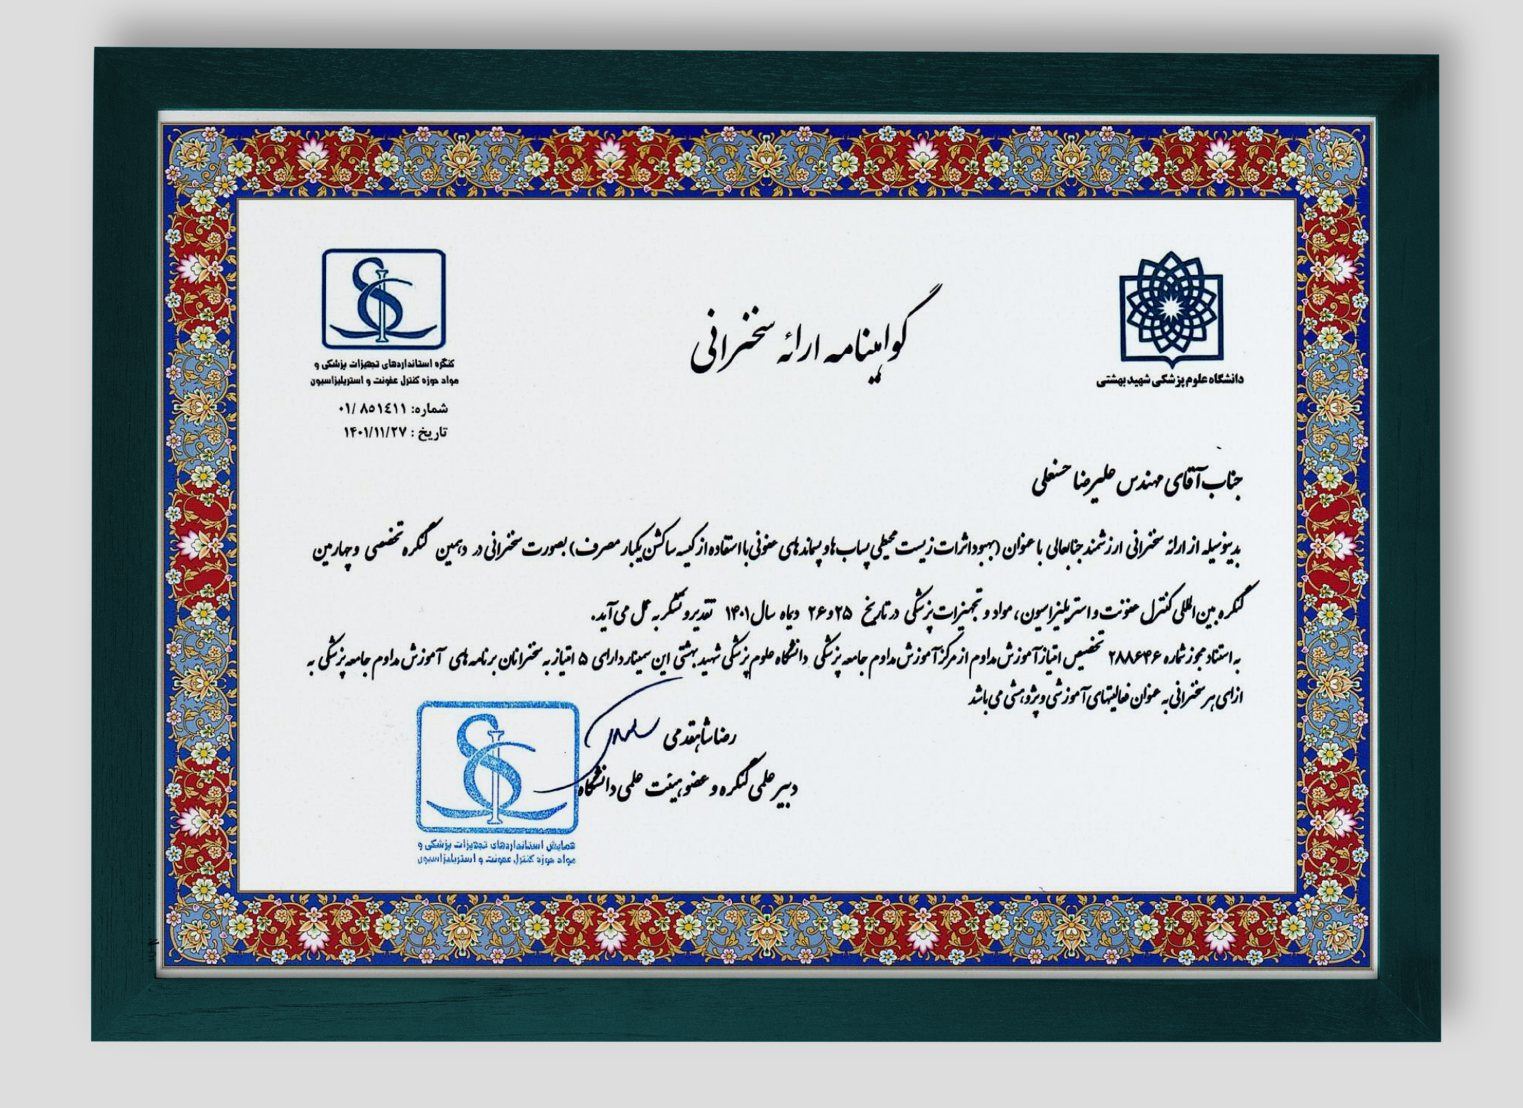 گواهینامه ارائه سخنرانی
دانشگاه علوم پزشکی شهید بهشتی
کنگره استانداردهای تجهیزات پزشکی و
مواد حوزه کنترل عفونت و استریلیزاسیون
شماره: ۰۱/ ۸۵۱٤۱۱
تاریخ : ۱۴۰۱/۱۱/۲۷
جناب آقای مهندس علیرضا حسنعلی
بدینوسیله از ارائه سخنرانی ارزشمند جنابعالی با عنوان (بهبود اثرات زیست محیطی پساب ها و پسماندهای عفونی با استفاده از کیسه ساکشن یکبار مصرف) بصورت سخنرانی در دهمین کنگره تخصصی و چهارمین
کنگره بین المللی کنترل عفونت و استریلیزاسیون، مواد و تجهیزات پزشکی در تاریخ ۲۵و۲۶ دیماه سال ۱۴۰۱ تقدیر و تشکر به عمل می آید.
به استناد مجوز شماره ۲۸۸۶۴۶ تخصیص امتیاز آموزش مداوم از مرکز آموزش مداوم جامعه پزشکی دانشگاه علوم پزشکی شهید بهشتی این سمینار دارای ۵ امتیاز به سخنرانان برنامه های آموزش مداوم جامعه پزشکی به
ازای هر سخنرانی به عنوان فعالیتهای آموزشی و پژوهشی می باشد
رضا شاهقدمی
دبیر علمی کنگره و عضو هیئت علمی دانشگاه
همایش استانداردهای تجهیزات پزشکی و
مواد حوزه کنترل عفونت و استریلیزاسیون